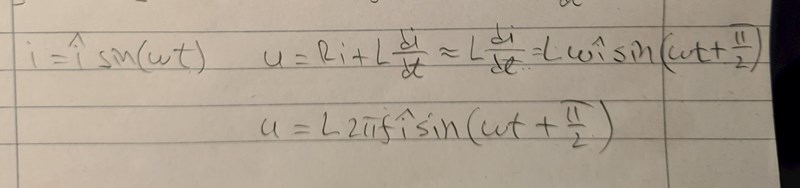 i = î sin(ωt) u = Ri + L di/dt ≈ L di/dt = Lωî sin(ωt + π/2)
u = L2πfî sin(ωt + π/2)